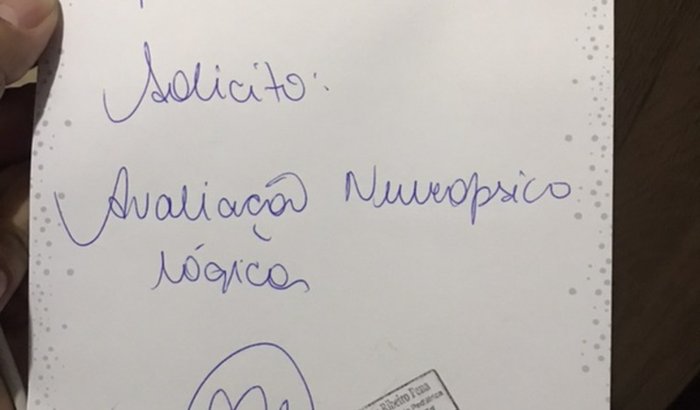 Solicito:
Avaliação Neuropsico
lógica
Ribeiro Pena
Pediátrica